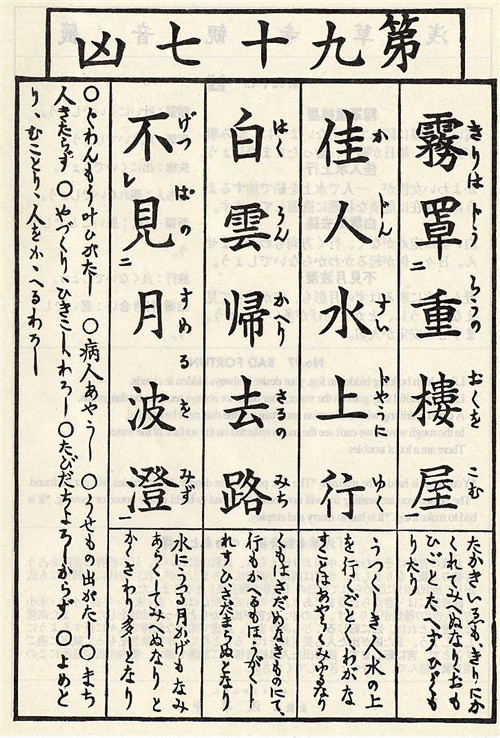 第九十七凶
霧罩二重樓屋
たかきいゑもきりにか
くれてみへぬなり、おも
りたり
佳人水上行
かじんすいじやうにゆく
うつくしき人水の上
を行くごとくわがな
すことはあやうくみゆるなり
白雲帰去路
はくうんかへりさるのみち
くもはさだめなきものにて、
行もかへるも
さだまらぬとなり
不見二月波澄一
げつぱのすめるをみず
水にうつる月かげもなみ
あらくしてみへぬなりと
かくさわり多しとなり
○ぐわんもう叶ひがたし ○病人あやうし ○うせもの出がたし ○まち
人きたらず ○やづくり、ひきこしわろし ○たびだちよろしからず ○よめと
り、むことり、人をかゝへるわろし